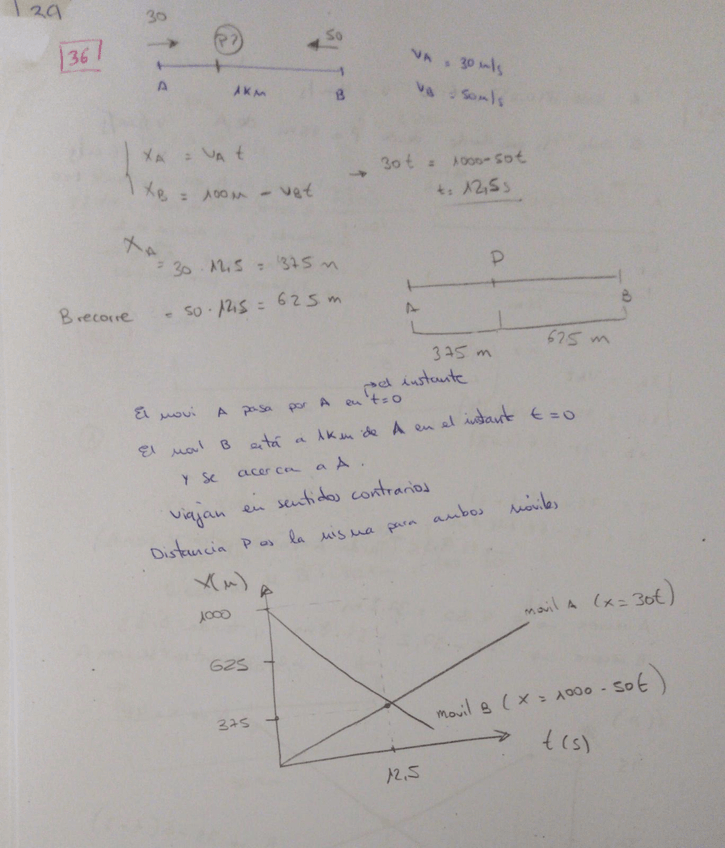 30
P?
50
36
A
1KM
B
VA = 30 m/s
VB = 50 m/s
XA = VA t
XB = 100m - VBt
→ 30t = 1000-50t
t = 12,5s
XA = 30 · 12,5 = 375 m
B recorre = 50 · 12,5 = 625 m
P
A
B
375 m
625 m
El movi A pasa por A en el instante t=0
El movil B está a 1Km de A en el instante t=0
y se acerca a A.
viajan en sentidos contrarios
Distancia P es la misma para ambos móviles
X(m)
1000
625
375
movil A (x=30t)
movil B (x = 1000-50t)
t(s)
12,5